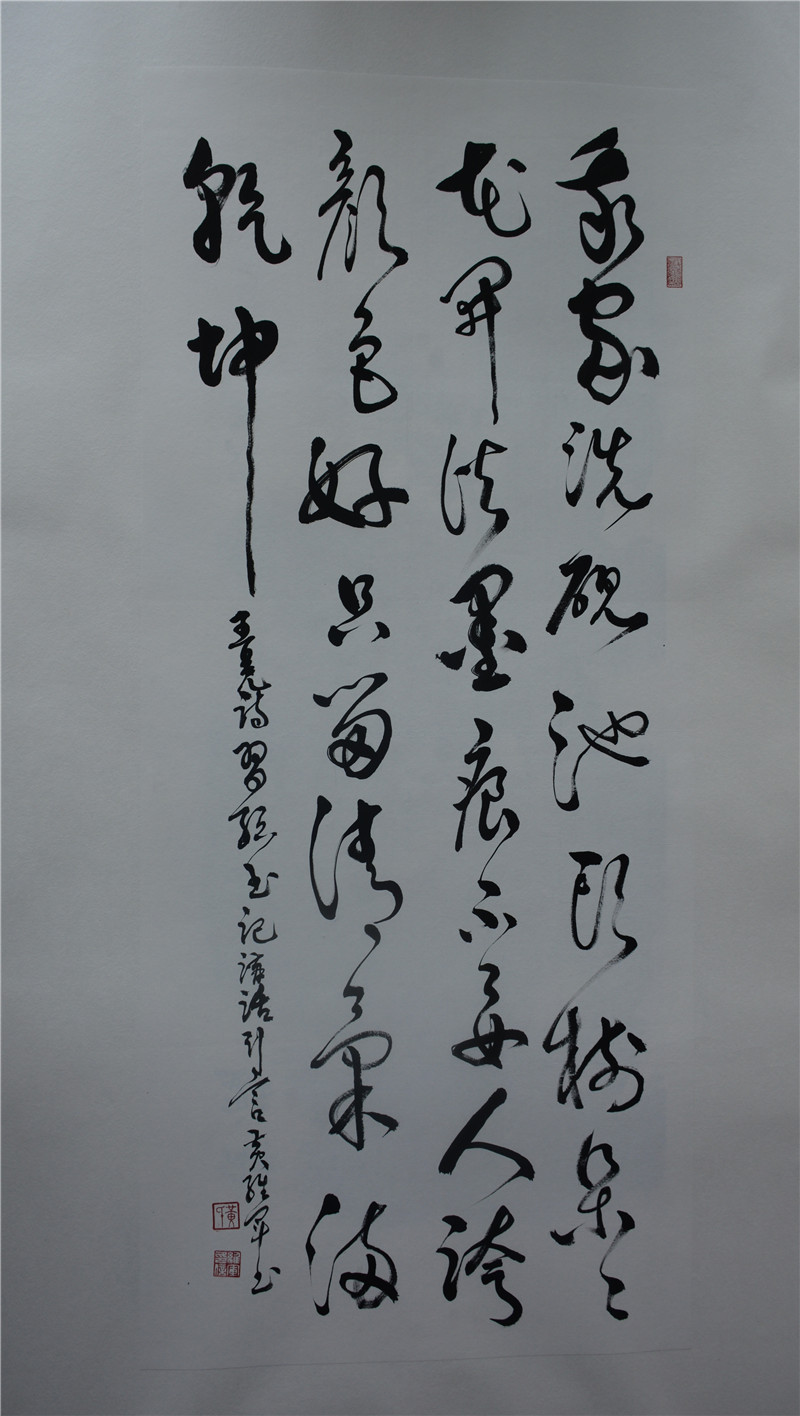 我家洗砚池头树朵〻
花开淡墨痕不要人夸
颜色好只留清气满
乾坤
王冕诗习总书记讲话引言黄维军书